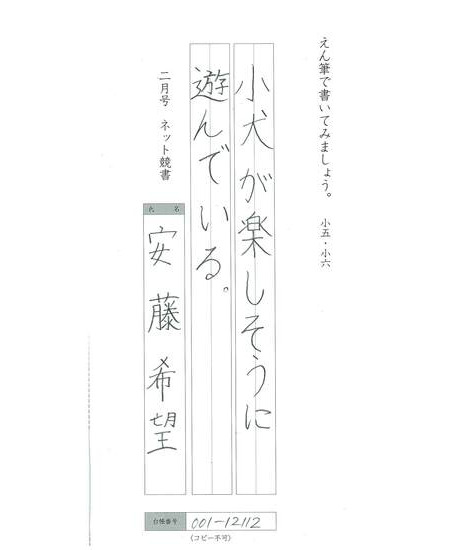 えん筆で書いてみましょう。 小五・小六
小犬が楽しそうに
遊んでいる。
二月号 ネット競書
氏 名
安藤希望
台帳番号 001-12112
(コピー不可)